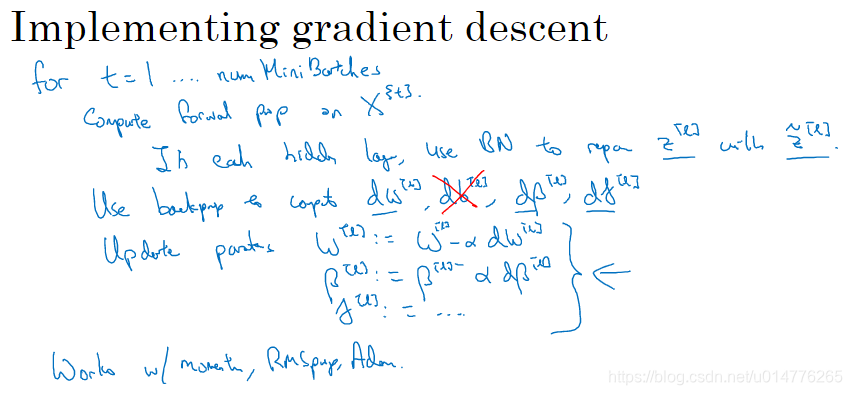 Implementing gradient descent
for t = 1 .... num MiniBatches
Compute forwal pop on X^{t}.
In eah hidden lay, use BN to repan z^[l] with z̃^[l].
Use backprop to compt dw^[l], db^[l], dβ^[l], dγ^[l]
Update partes W^[l] := W^[l] - α dw^[l]
β^[l] := β^[l] - α dβ^[l]
γ^[l] := ....
Works w/ momentu, RMSprop, Adam.
https://blog.csdn.net/u014776265